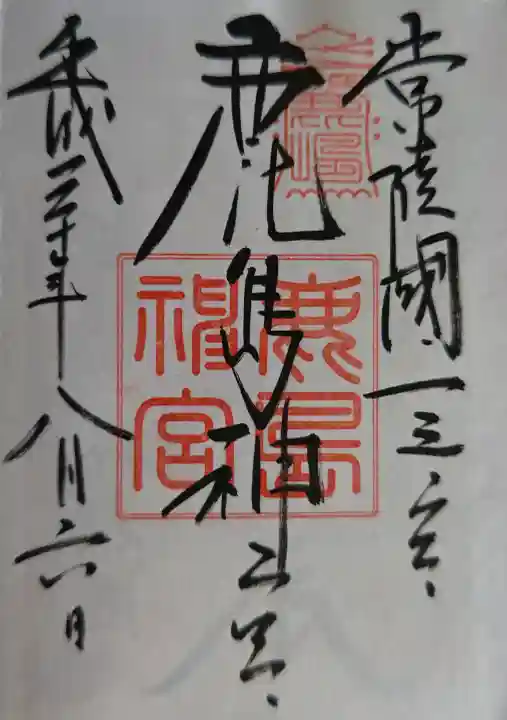 常陸國一之宮
鹿島神宮
平成三十年八月六日
鹿島
神宮